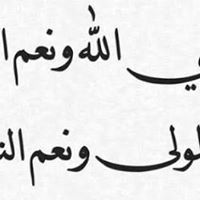 ي الله ونعم ا
لمولى ونعم الن